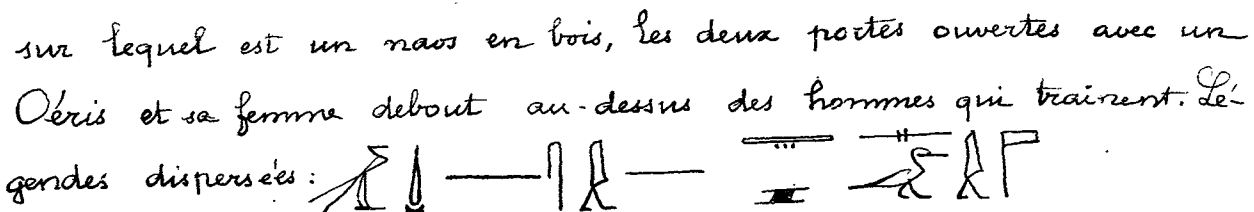 sur lequel est un naos en bois, les deux portes ouvertes avec un
Oéris et sa femme debout au-dessus des hommes qui trainent. Lé-
gendes dispersées :